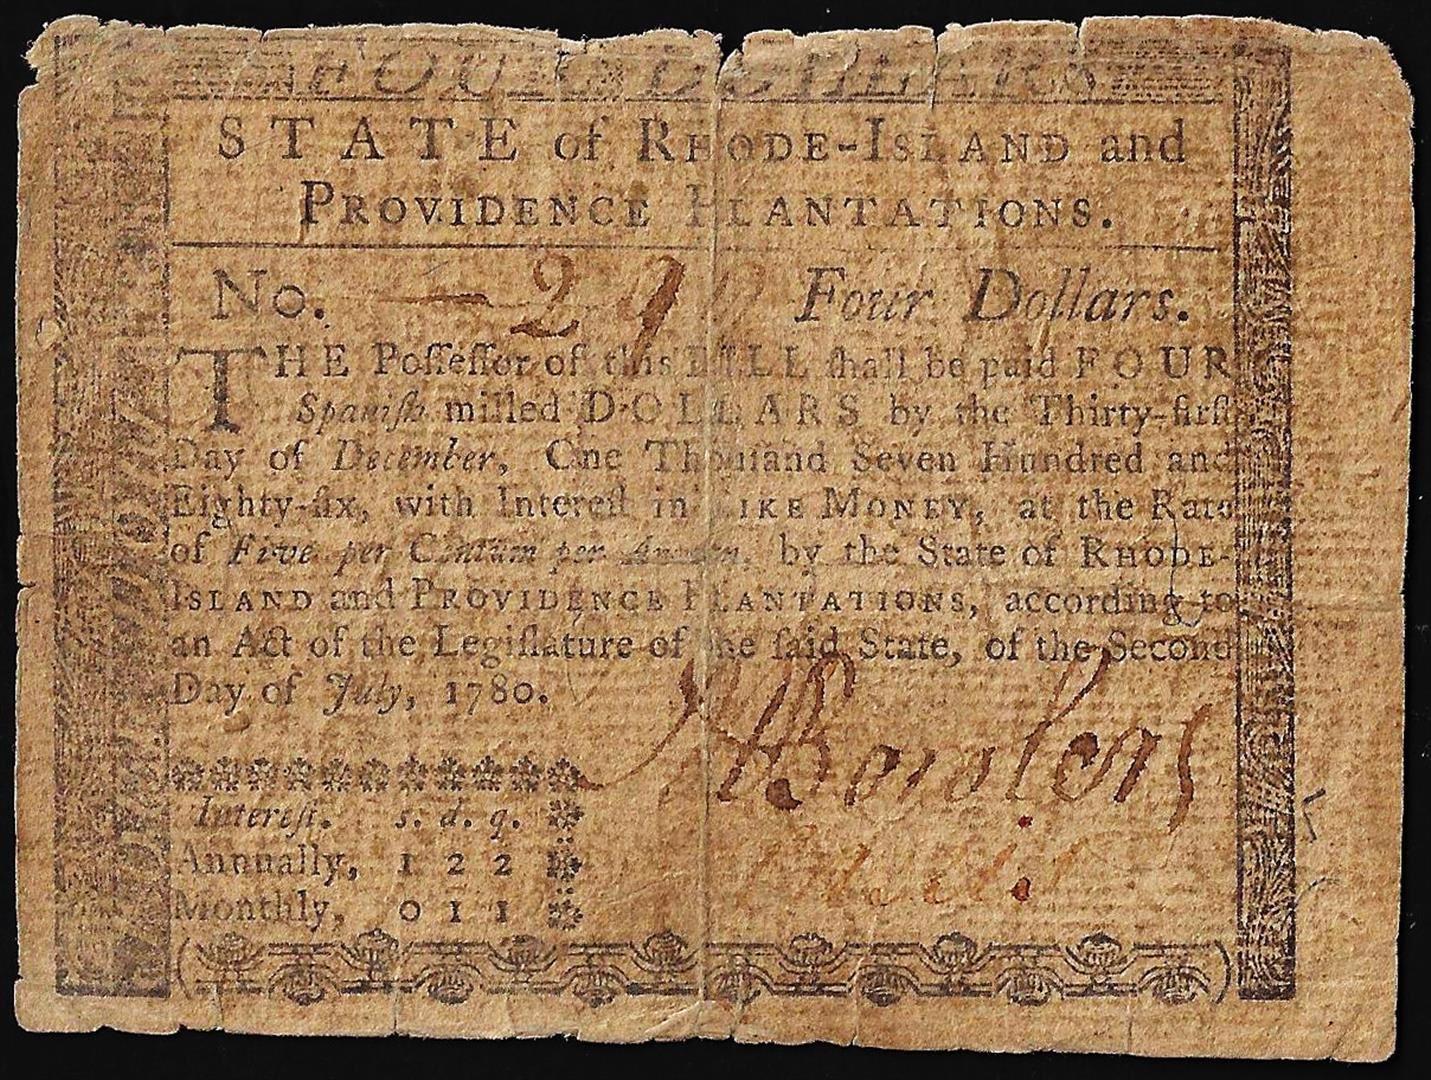 FOUR DOLLARS
STATE of RHODE-ISLAND and
PROVIDENCE PLANTATIONS.
No. 29 Four Dollars.
THE Poſſeſſor of this BILL ſhall be paid FOUR
Spaniſh milled DOLLARS by the Thirty-firſt
Day of December, One Thouſand Seven Hundred and
Eighty-ſix, with Intereſt in LIKE MONEY, at the Rate
of Five per Centum per Annum, by the State of RHODE-
ISLAND and PROVIDENCE PLANTATIONS, according to
an Act of the Legiſlature of the ſaid State, of the Second
Day of July, 1780.
Intereſt. s. d. q.
Annually, 1 2 2
Monthly, 0 1 1